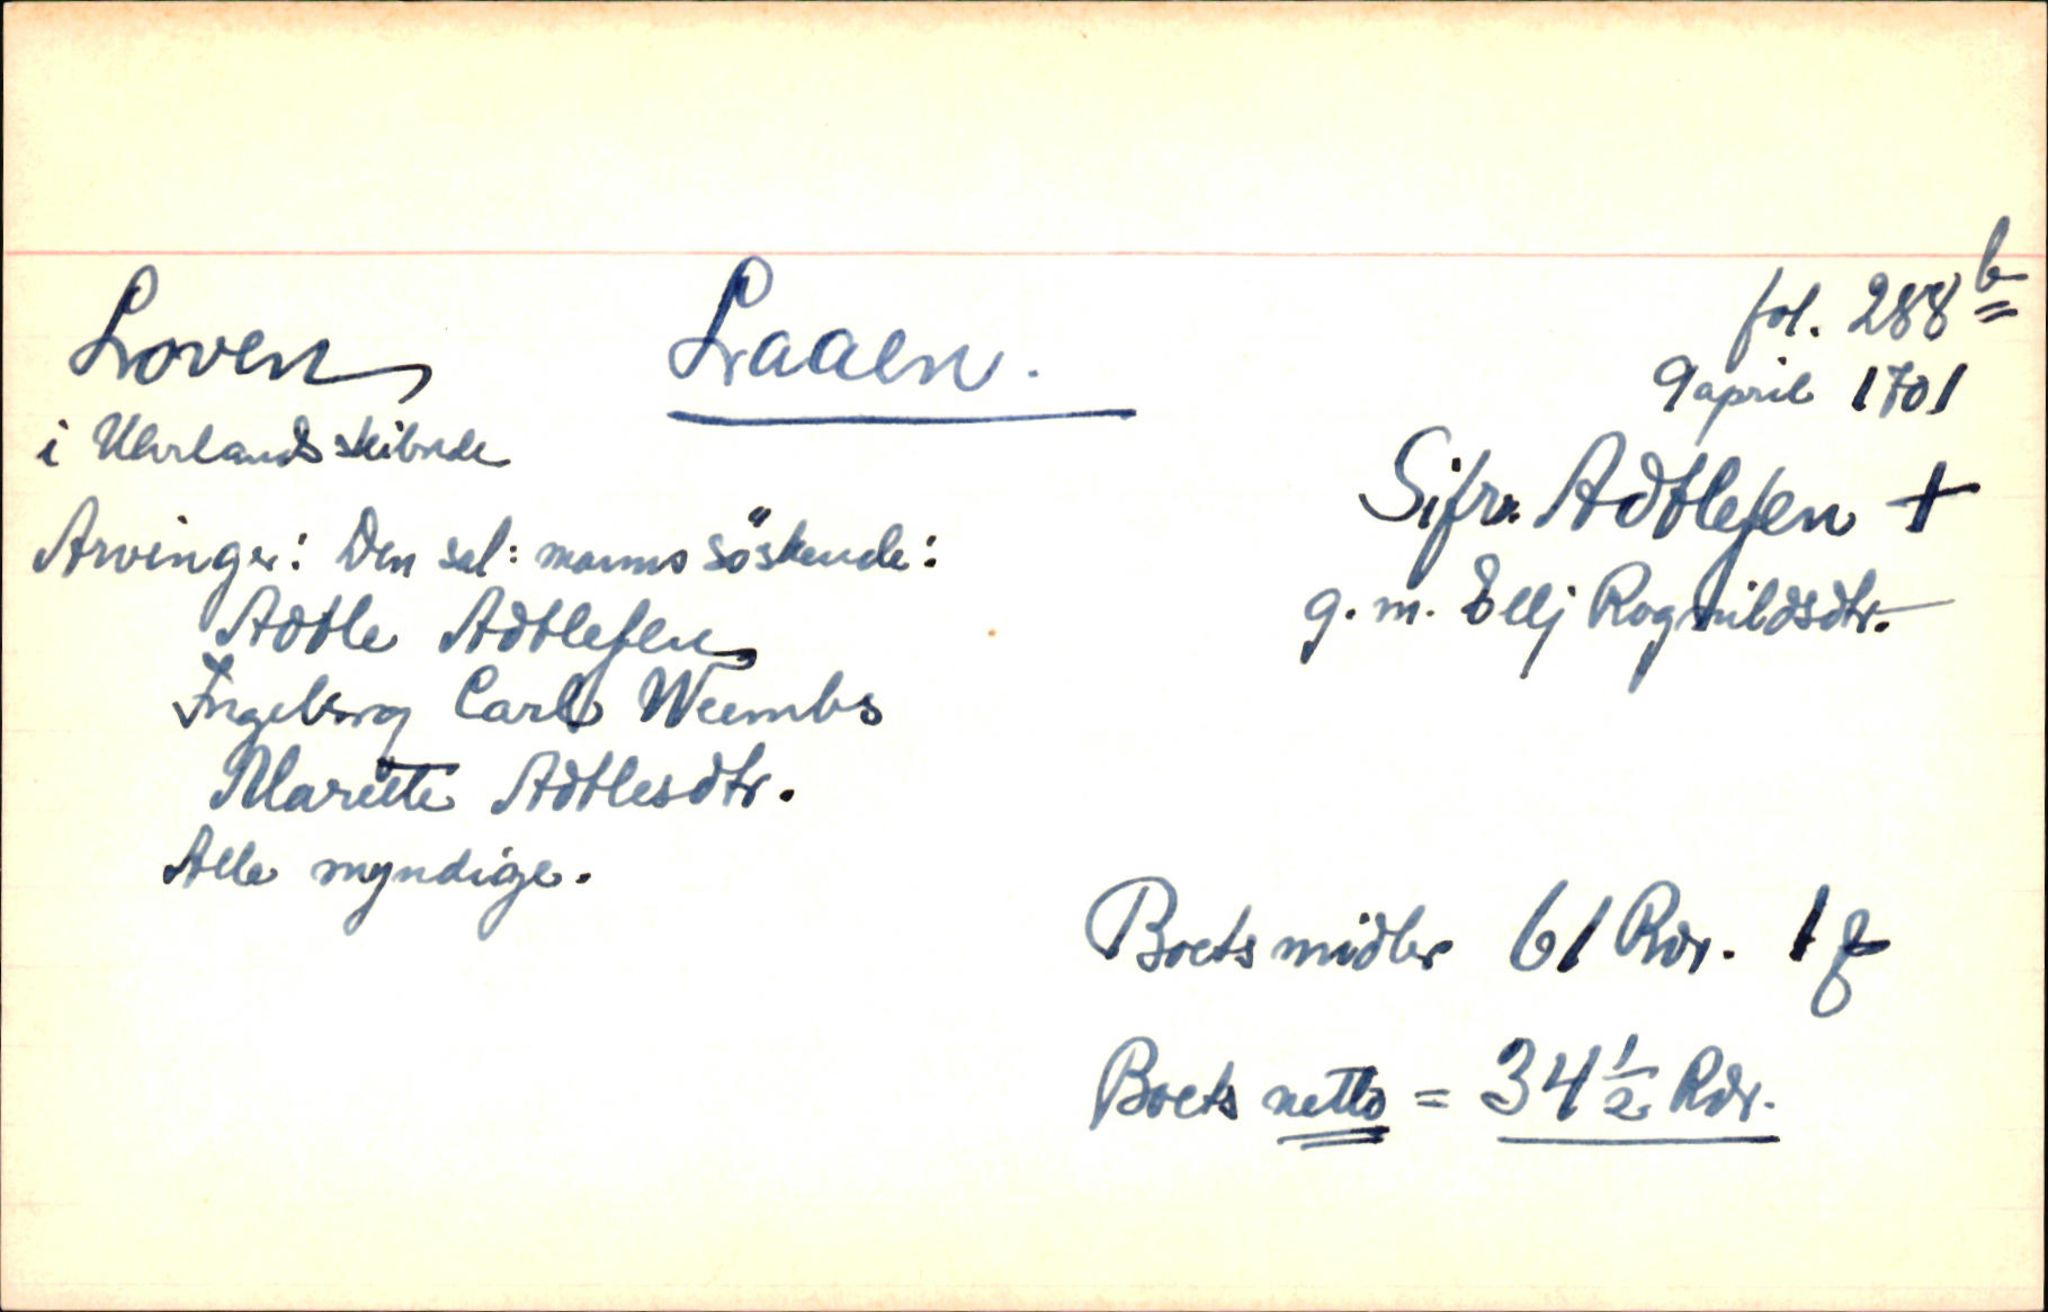 Loven Laaen. fol. 288 b
9 april 1701
i Uhrlands skibrede
Sifr. Adtlesen +
g. m. Ellj Rognildsdtr.
Arvinger: Den sal: manns söskende:
Adtle Adtlesen
Ingeborg Carls Weembs
Mariete Adtlesdtr.
Alle myndige.
Boets midler 61 Rdr. 1
Boets netto = 34 1/2 Rdr.